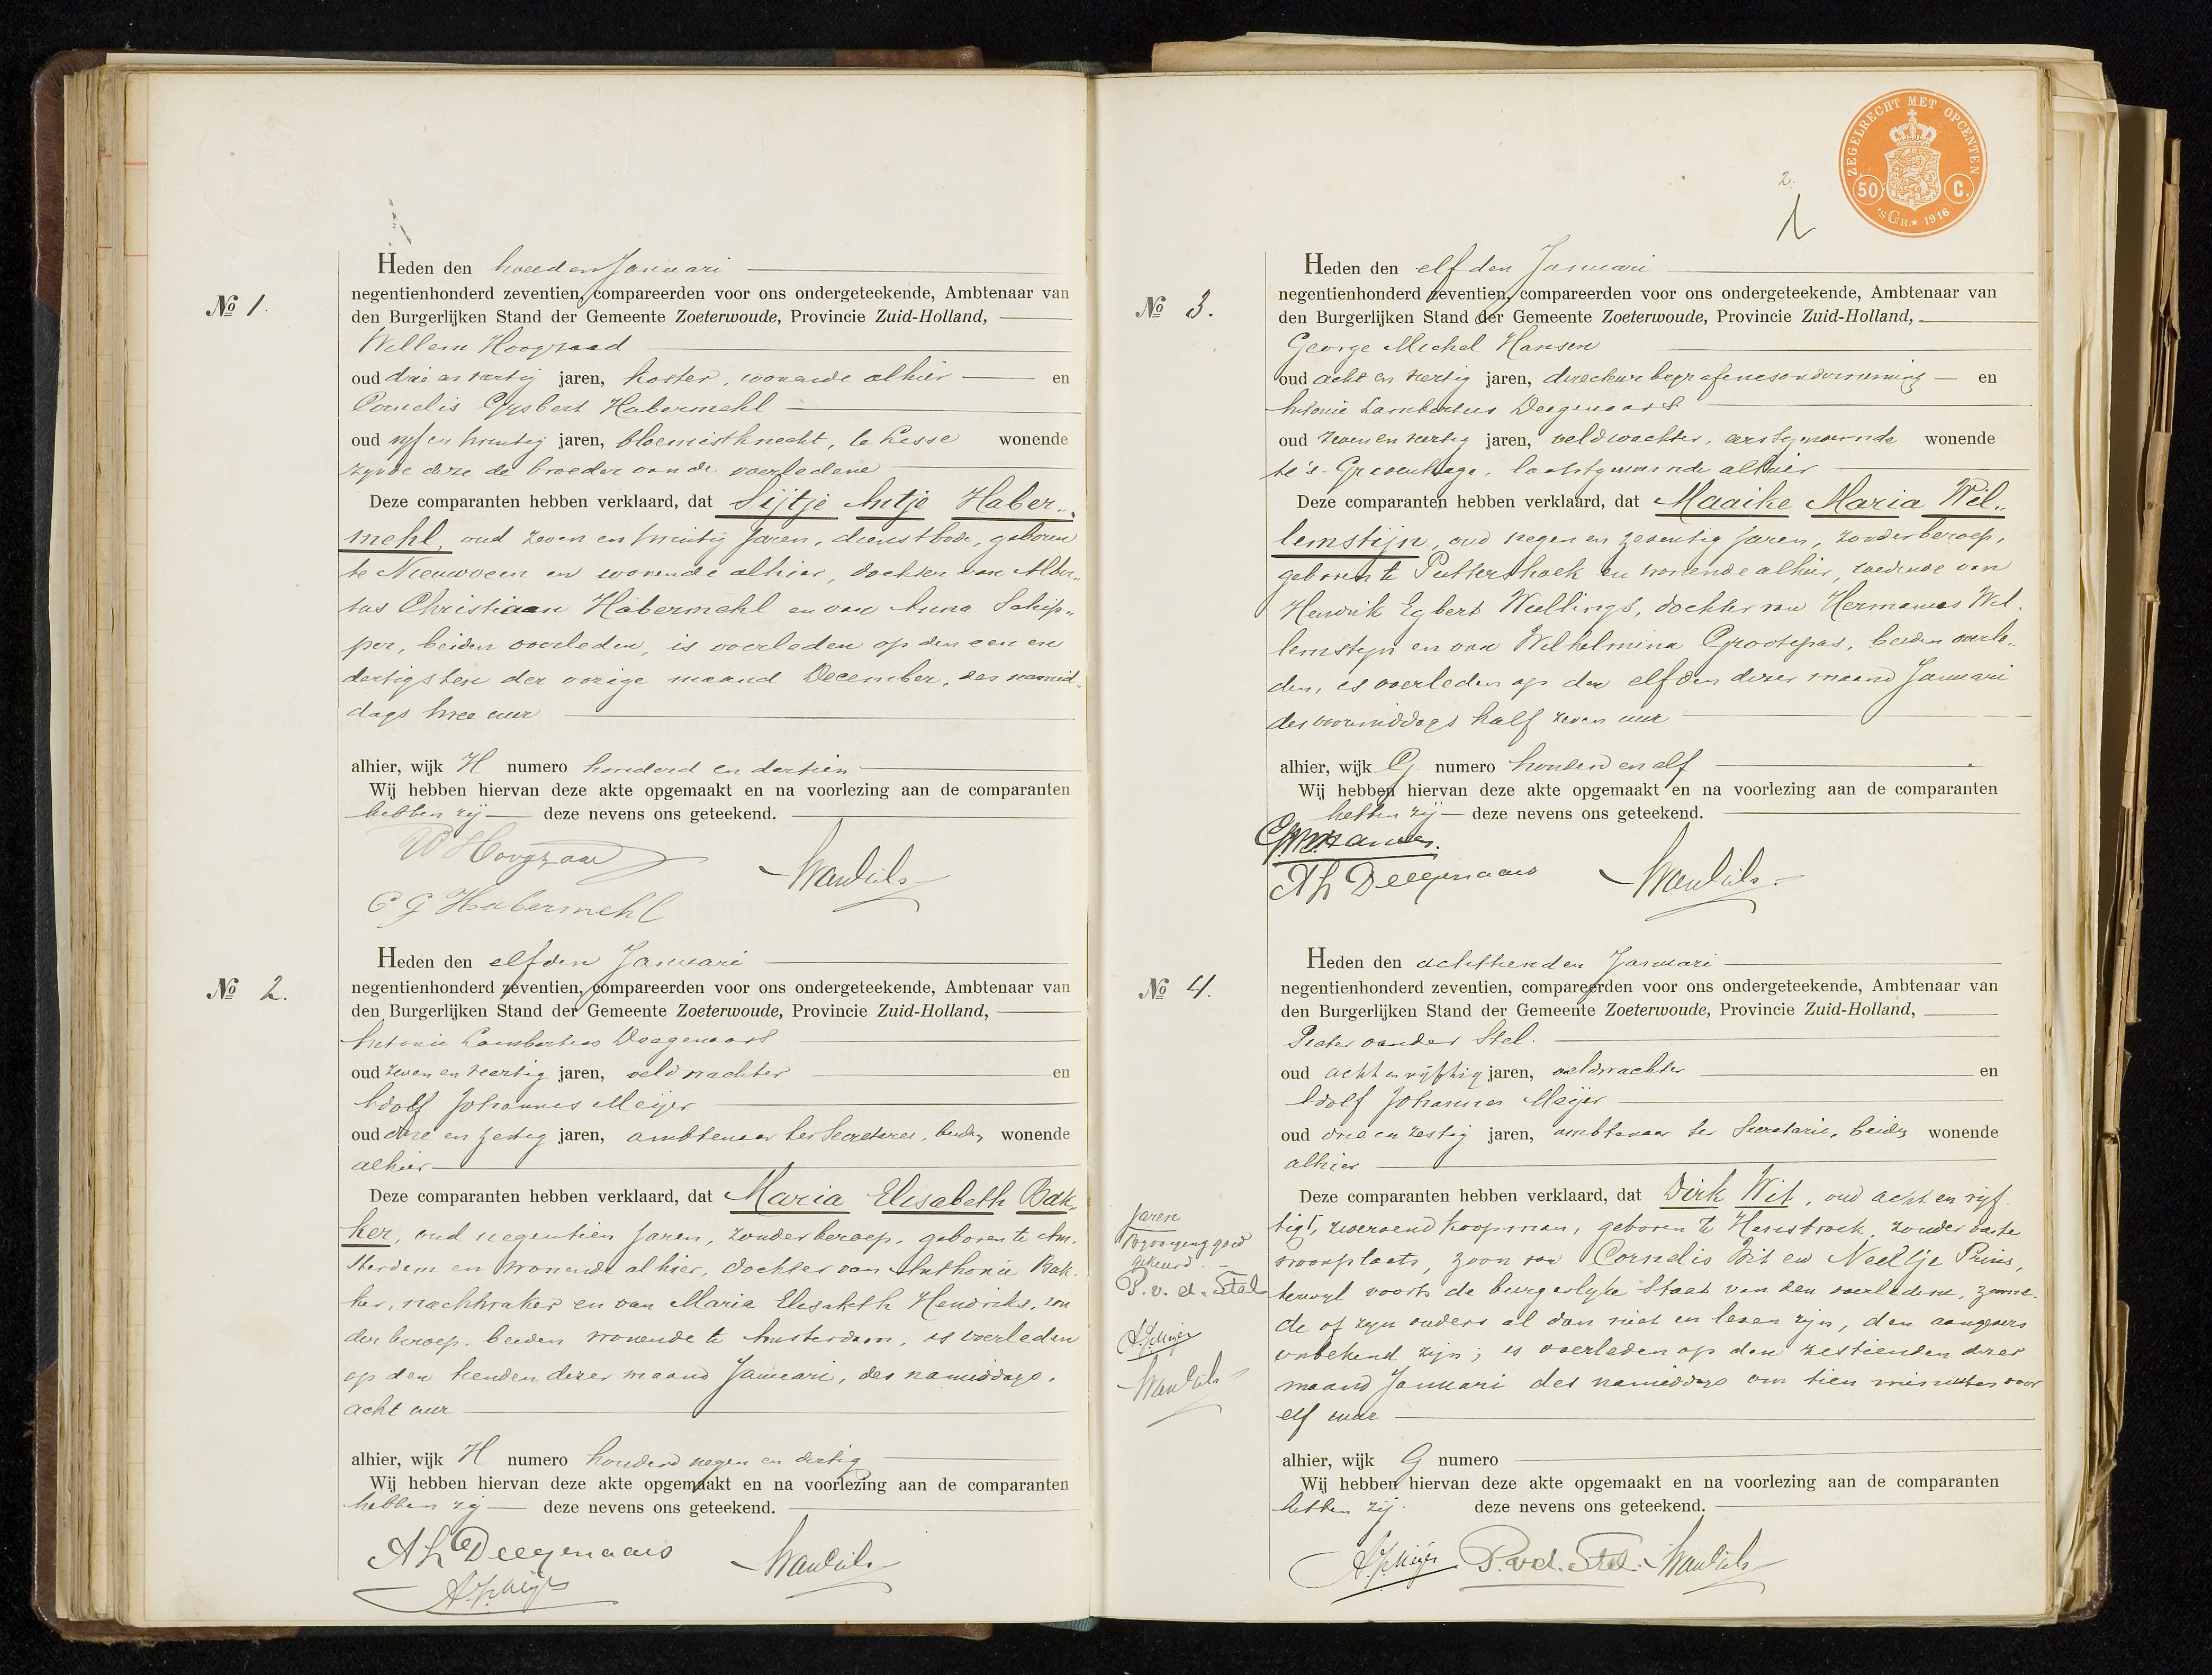 Heden den tweeden Januari
No 1.
negentienhonderd zeventien, compareerden voor ons ondergeteekende, Ambtenaar van
den Burgerlijken Stand der Gemeente Zoeterwoude, Provincie Zuid-Holland,
Willem Hoograad
oud drie en veertig jaren, koster, wonende alhier en
Cornelis Gysbert Habermehl
oud vijf en twintig jaren, bloemistknecht, te Lisse wonende
zynde deze de broeder van de overledene
Deze comparanten hebben verklaard, dat Sijtje Antje Haber„
mehl, oud zeven en twintig jaren, dienstbode, geboren
te Nieuwveen en wonende alhier, dochter van Alber„
tus Christiaan Habermehl en van Anna Schip„
per, beiden overleden, is overleden op den een en
dertigsten der vorige maand December, des namid„
dags twee uur
alhier, wijk H numero honderd en dertien
Wij hebben hiervan deze akte opgemaakt en na voorlezing aan de comparanten
hebben zij deze nevens ons geteekend.
W Hoograad
C G Habermehl
Heden den elfden Januari
No 2.
negentienhonderd zeventien, compareerden voor ons ondergeteekende, Ambtenaar van
den Burgerlijken Stand der Gemeente Zoeterwoude, Provincie Zuid-Holland,
Antonie Lambertus Deegenaars
oud zeven en veertig jaren, veldwachter en
Adolf Johannes Meijer
oud drie en zestig jaren, ambtenaar ter Secretarie, beiden wonende
alhier
Deze comparanten hebben verklaard, dat Maria Elisabeth Bak„
ker, oud negentien jaren, zonder beroep, geboren te Am„
sterdam en wonende alhier, dochter van Anthonie Bak„
ker, nachtwaker en van Maria Elisabeth Hendriks, zon
der beroep, beiden wonende te Amsterdam, is overleden
op den tienden dezer maand Januari, des namiddags,
acht uur
alhier, wijk H numero honderd negen en dertig
Wij hebben hiervan deze akte opgemaakt en na voorlezing aan de comparanten
hebben zij deze nevens ons geteekend.
A L Deegenaars
A.J. Meijer
ZEGELRECHT MET OPCENTEN
50 C.
'sGR. 1916
2.
1
Heden den elfden Januari
No 3.
negentienhonderd zeventien, compareerden voor ons ondergeteekende, Ambtenaar van
den Burgerlijken Stand der Gemeente Zoeterwoude, Provincie Zuid-Holland,
George Michel Hansen
oud acht en veertig jaren, directeur begrafenisonderneming en
Antonie Lambertus Deegenaars
oud zeven en veertig jaren, veldwachter, eerstgenoemde wonende
te 's-Gravenhage, laatstgenoemde alhier
Deze comparanten hebben verklaard, dat Maaike Maria Wil„
lemstijn, oud negen en zeventig jaren, zonder beroep,
geboren te Puttershoek en wonende alhier, weduwe van
Hendrik Egbert Wullings, dochter van Hermanus Wil„
lemstyn en van Wilhelmina Grootepas, beiden overle„
den, is overleden op den elfden dezer maand Januari
des voormiddags half zeven uur
alhier, wijk G numero honderd en elf
Wij hebben hiervan deze akte opgemaakt en na voorlezing aan de comparanten
hebben zij deze nevens ons geteekend.
A L Deegenaars
Heden den achttienden Januari
No 4.
negentienhonderd zeventien, compareerden voor ons ondergeteekende, Ambtenaar van
den Burgerlijken Stand der Gemeente Zoeterwoude, Provincie Zuid-Holland,
Pieter van der Stel.
oud acht en vijftig jaren, veldwachter en
Adolf Johannes Meijer
oud drie en zestig jaren, ambtenaar ter Secretarie, beiden wonende
alhier
Deze comparanten hebben verklaard, dat Dirk Wit, oud acht en vijf
tig, zwervend koopman, geboren te Hensbroek, zonder vaste
woonplaats, zoon van Cornelis Wit en Neeltje Prins,
terwyl voorts de burgerlyke staat van den overledene, zoome„
de of zyn ouders al dan niet in leven zyn, den aangevers
onbekend zijn; is overleden op den zestienden dezer
maand Januari des namiddags om tien minuten voor
elf uur
jaren
Byvoeging goed
gekeurd.
P. v. d. Stel
A.J. Meijer
alhier, wijk G numero
Wij hebben hiervan deze akte opgemaakt en na voorlezing aan de comparanten
hebben zij. deze nevens ons geteekend.
A.J. Meijer P. v.d. Stel.